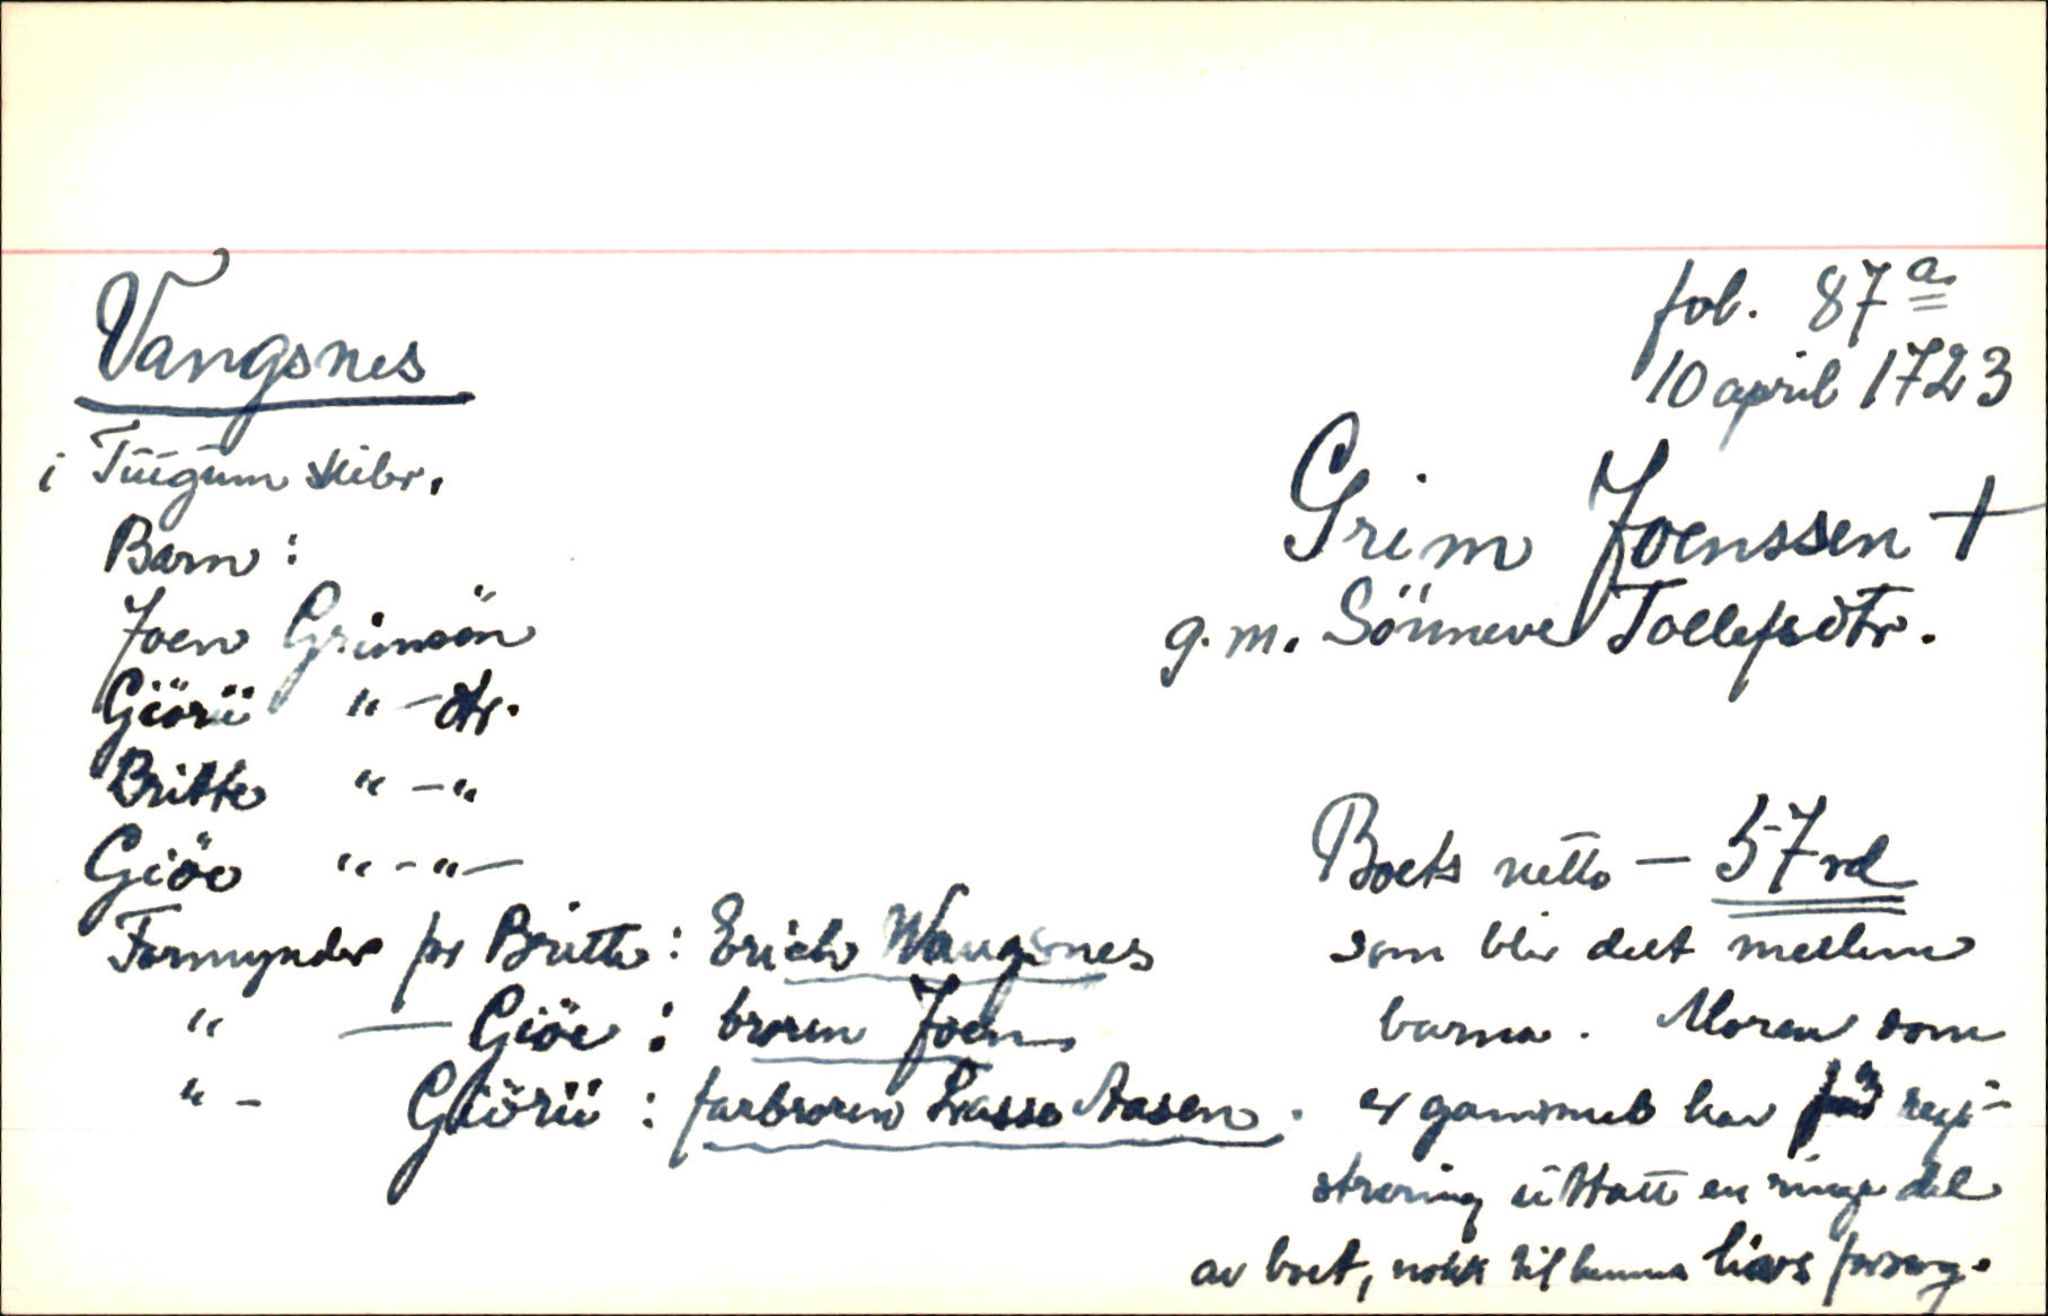 Vangsnes
i Tuigum skibr.
Barn:
Joen Grimsön
Giörü " - dtr.
Britte " - "
Giöe " - " -
Formynder for Britte: Erich Wangsnes
" — Giöe: broren Joen
" - Giörü: farbroren Lasse Aasen.
fol. 87a
10 april 1723
Grim Joenssen +
g.m. Sönneve Tollefsdtr.
Boets netto — 57 rd
som blir delt mellem
barna. Moren som
er gammel har før regi-
strering uttatt en ringe del
av boet, nokk til hennes livs forsorg.